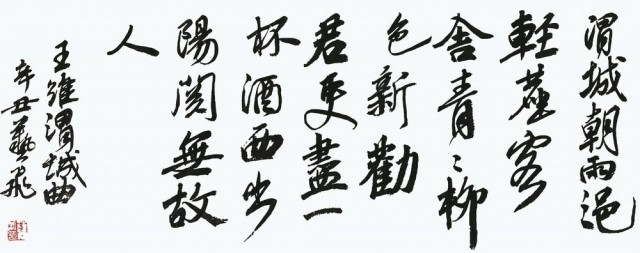 渭城朝雨浥
輕塵客
舍青〻柳
色新勸
君更盡一
杯酒西出
陽關無故
人
王維渭城曲
辛丑飛